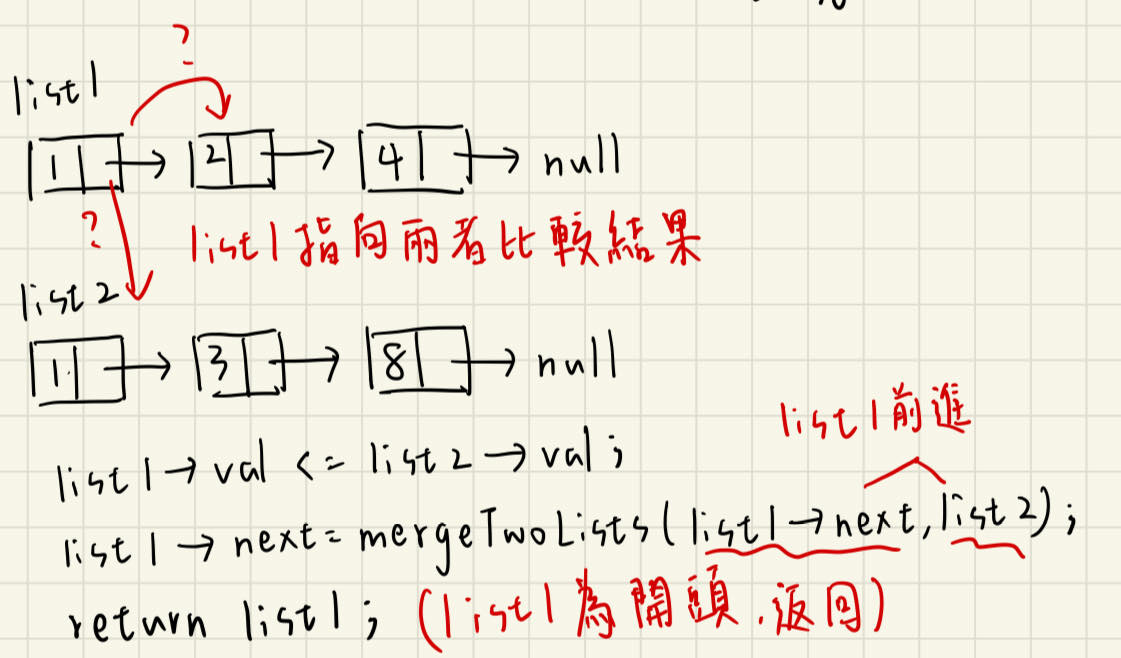 ?
list1
1 → 2 → 4 → null
?
list1指向兩者比較結果
list2
1 → 3 → 8 → null
list1前進
list1→val <= list2→val;
list1→next=mergeTwoLists(list1→next,list2);
return list1; (list1為開頭.返回)